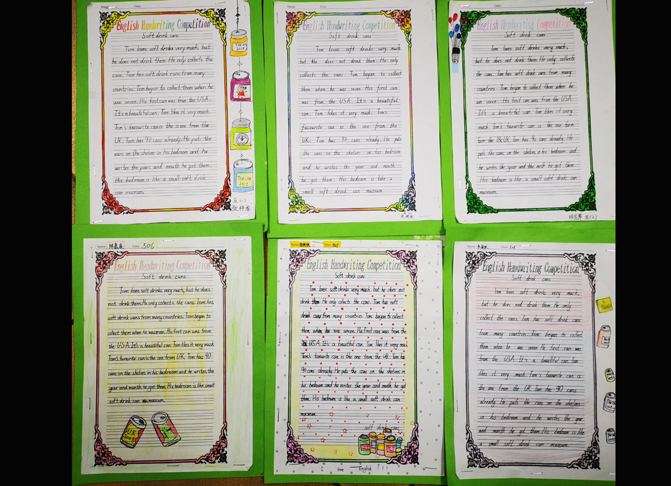 English Handwriting Competition
Soft drink cans
Tom loves soft drinks very much, but
he does not drink them. He only collects the
cans. Tom has soft drink cans from many
countries. Tom began to collect them when he
was seven. His first can was from the USA.
It's a beautiful can. Tom likes it very much.
Tom's favourite can is the one from the
UK. Tom has 90 cans already. He puts the
cans on the shelves in his bedroom and he
writes the year and month he got them.
His bedroom is like a small soft drink
can museum.
English Handwriting Competition
Soft drink cans
Tom loves soft drinks very much
but he does not drink them. He only
collects the cans. Tom began to collect
them when he was seven. His first can
was from the USA. It's a beautiful
can. Tom likes it very much. Tom's
favourite can is the one from the
UK. Tom has 90 cans already. He puts
the cans on the shelves in his bedroom
and he writes the year and month
he got them. His bedroom is like a
small soft drink can museum.
English Handwriting Competition
Soft drink cans
Tom loves soft drinks very much,
but he does not drink them. He only collects
the cans. Tom has soft drink cans from many
countries. Tom began to collect them when he
was seven. His first can was from the USA.
It's a beautiful can. Tom likes it very
much. Tom's favourite can is the one
from the UK. Tom has 90 cans already. He
puts the cans on the shelves in his bedroom
and he writes the year and month he got
them. His bedroom is like a small soft drink can
museum.
English Handwriting Competition
Soft drink cans
Tom loves soft drinks very much, but he does
not drink them. He only collects the cans. Tom has
soft drink cans from many countries. Tom began to
collect them when he was seven. His first can was from
the USA. It's a beautiful can. Tom likes it very much.
Tom's favourite can is the one from the UK. Tom has 90
cans on the shelves in his bedroom and he writes the
year and month he got them. His bedroom is like a small
soft drink can museum.
English Handwriting Competition
Soft drink cans
Tom loves soft drinks very much, but he does not
drink them. He only collects the cans. Tom has soft
drink cans from many countries. Tom began to collect
them when he was seven. His first can was from the
USA. It's a beautiful can. Tom likes it very much.
Tom's favourite can is the one from the UK. Tom has
90 cans already. He puts the cans on the shelves in
his bedroom and he writes the year and month he got
them. His bedroom is like a small soft drink can
museum.
English Handwriting Competition
Soft drink cans
Tom loves soft drinks very much,
but he does not drink them. He only
collects the cans. Tom has soft drink cans
from many countries. Tom began to collect
them when he was seven. His first can was
from the USA. It's a beautiful can. Tom
likes it very much. Tom's favourite can is
the one from the UK. Tom has 90 cans
already. He puts the cans on the shelves
in his bedroom and he writes the year
and month he got them. His bedroom is like
a small soft drink can museum.